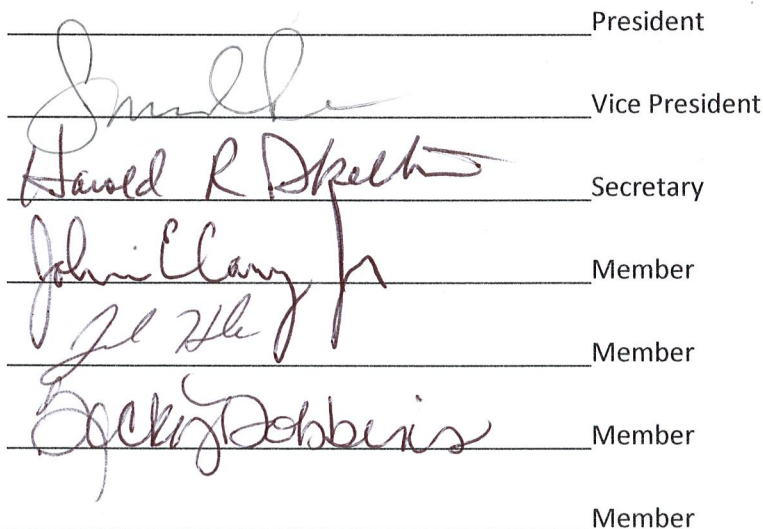 President
Vice President
Harold R Skelton Secretary
John E Clary Jr Member
Member
Becky Dobbins Member
Member